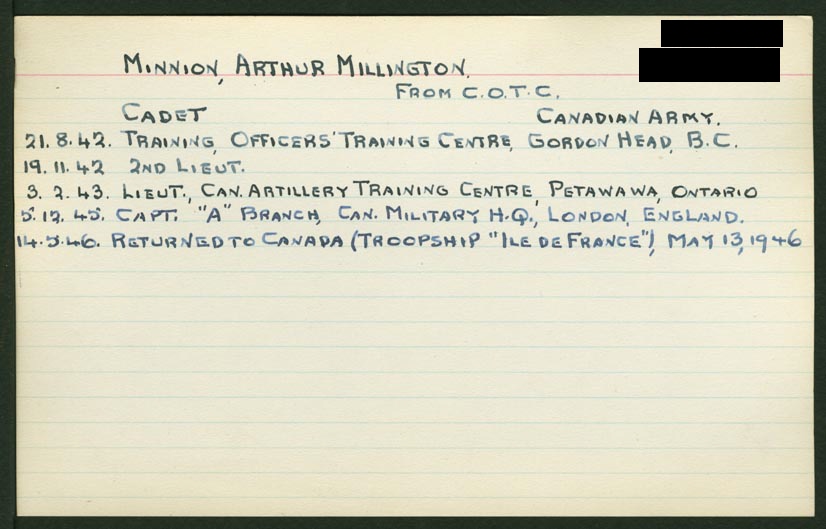 MINNION, ARTHUR MILLINGTON.
FROM C.O.T.C.
CADET CANADIAN ARMY.
21.8.42. TRAINING, OFFICERS' TRAINING CENTRE, GORDON HEAD, B.C.
19.11.42 2ND LIEUT.
3.2.43. LIEUT., CAN. ARTILLERY TRAINING CENTRE, PETAWAWA, ONTARIO
5.12.45. CAPT. "A" BRANCH, CAN. MILITARY H.Q., LONDON, ENGLAND.
14.5.46. RETURNED TO CANADA (TROOPSHIP "ILE DE FRANCE"), MAY 13, 1946